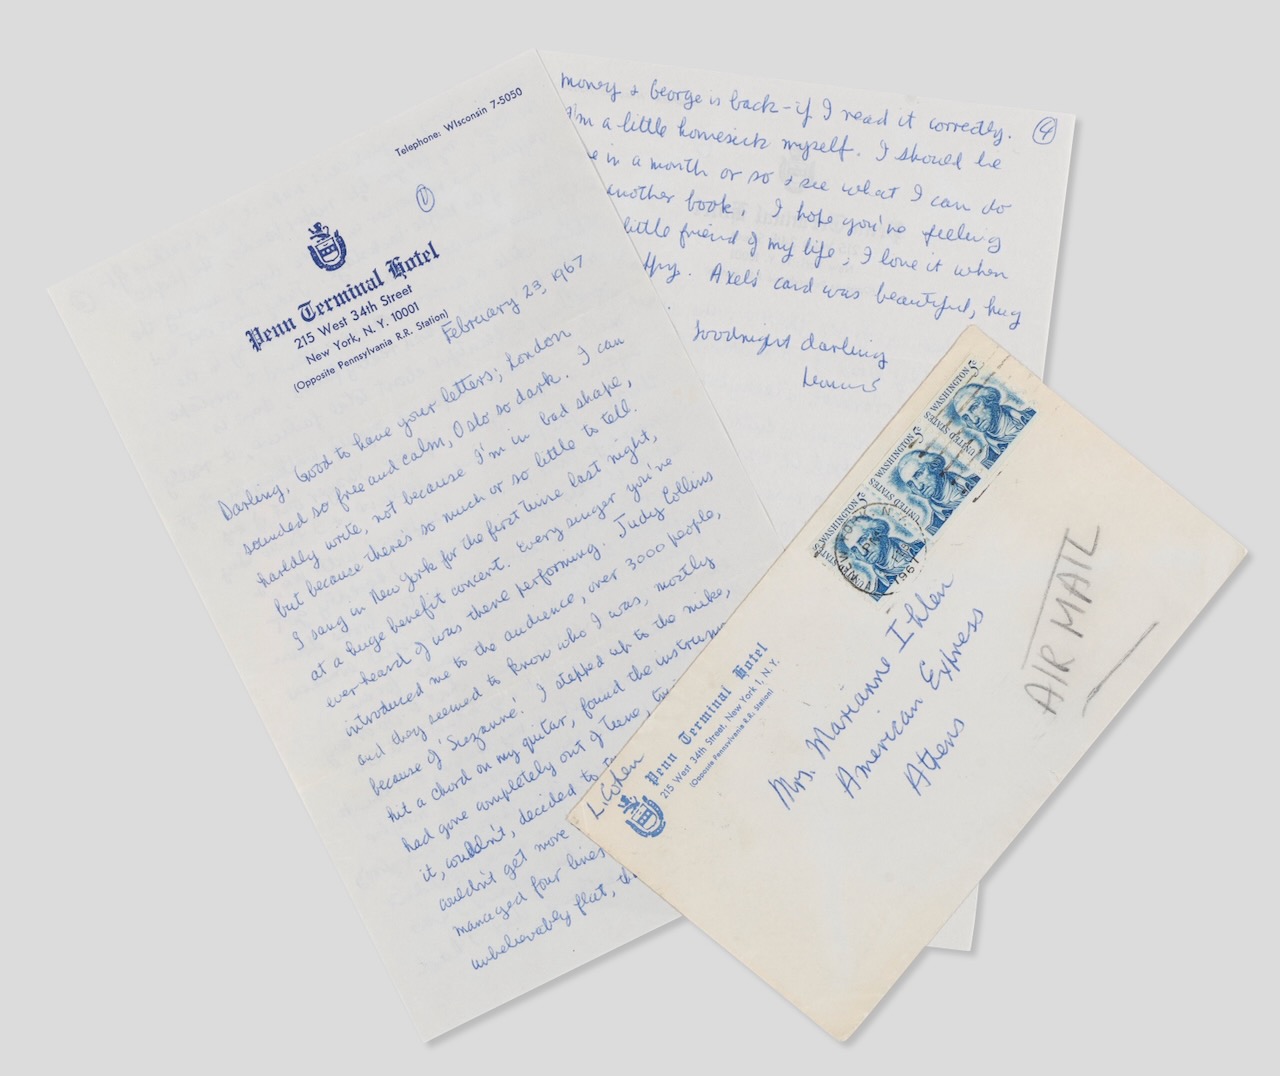 Telephone: WIsconsin 7-5050
1
Penn Terminal Hotel
215 West 34th Street
New York, N. Y. 10001
(Opposite Pennsylvania R.R. Station)
February 23, 1967
Darling, Good to have your letters; London
sounded so free and calm, Oslo so dark. I can
hardly write, not because I'm in bad shape,
but because there's so much or so little to tell.
I sang in New York for the first time last night,
at a huge benefit concert. Every singer you've
ever heard of was there performing. Judy Collins
introduced me to the audience, over 3000 people,
and they seemed to know who I was, mostly
because of 'Suzanne'. I stepped up to the mike,
hit a chord on my guitar, found the
had gone completely out of tune,
it, couldn't, decided to
couldn't get more
managed four lines
unbelievably flat,
money & George is back - if I read it correctly.
I'm a little homesick myself. I should be
in a month or so & see what I can do
another book. I hope you're feeling
little friend of my life; I love it when
Axel's card was beautiful, hug
Goodnight darling
Leonard
4
UNITED STATES WASHINGTON 5c
UNITED STATES WASHINGTON 5c
UNITED STATES WASHINGTON 5c
1967
AIR MAIL
L. Cohen
Penn Terminal Hotel
215 West 34th Street, New York 1, N. Y.
(Opposite Pennsylvania R.R. Station)
Mrs. Marianne Ihlen
American Express
Athens